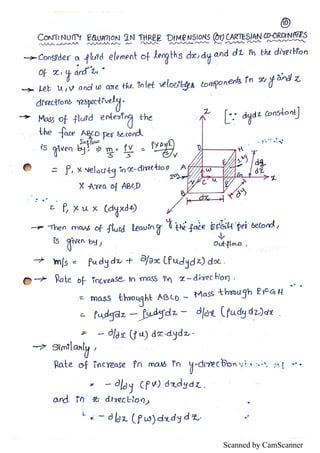 10
CONTINUITY EQUATION IN THREE DIMENSIONS (OR) CARTESIAN CO-ORDINATES
→ Consider a fluid element of lengths dx, dy and dz in the direction
of x, y and z.
→ Let u, v and w are the inlet velocities components in x, y and z
directions respectively.
→ Mass of fluid entering the
the face ABCD per second
Inflow
is given by: ⇒ m/s = ρV/s = ρxAxL/s
= ρ, x velocity in x-direction
x Area of ABCD
= ρ, x u x (dyxdz)
[∵ dydz constant]
→ Then mass of fluid leaving the face EFGH per second,
is given by,
↓ outflow.
→ m/s = ρudydz + ∂/∂x (ρudydz) dx.
→ Rate of increase in mass in x-direction.
= mass throught ABCD - Mass through EFGH
= ρudydz - ρudydz - ∂/∂x (ρudydz)dx
= - ∂/∂x (ρu) dx.dydz.
→ Similarly,
Rate of increase in mass in y-direction
= - ∂/∂y (ρv) dxdydz.
and in z direction,
= - ∂/∂z (ρw) dxdydz.
Scanned by CamScanner